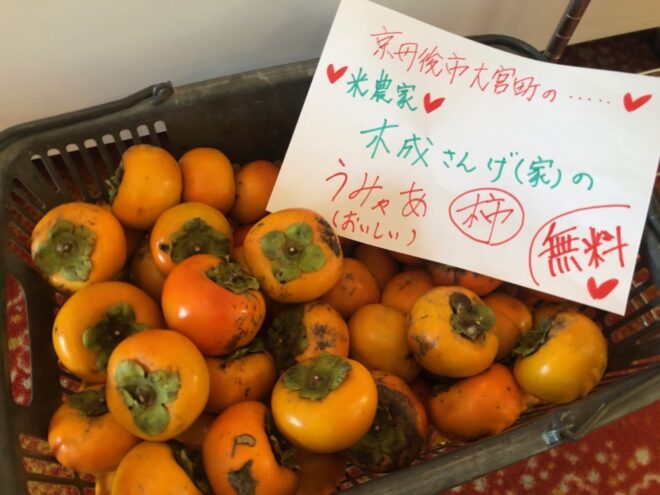 京丹後市大宮町の......
米農家
木成さんげ(家)の
うみゃあ 柿 無料
(おいしい)